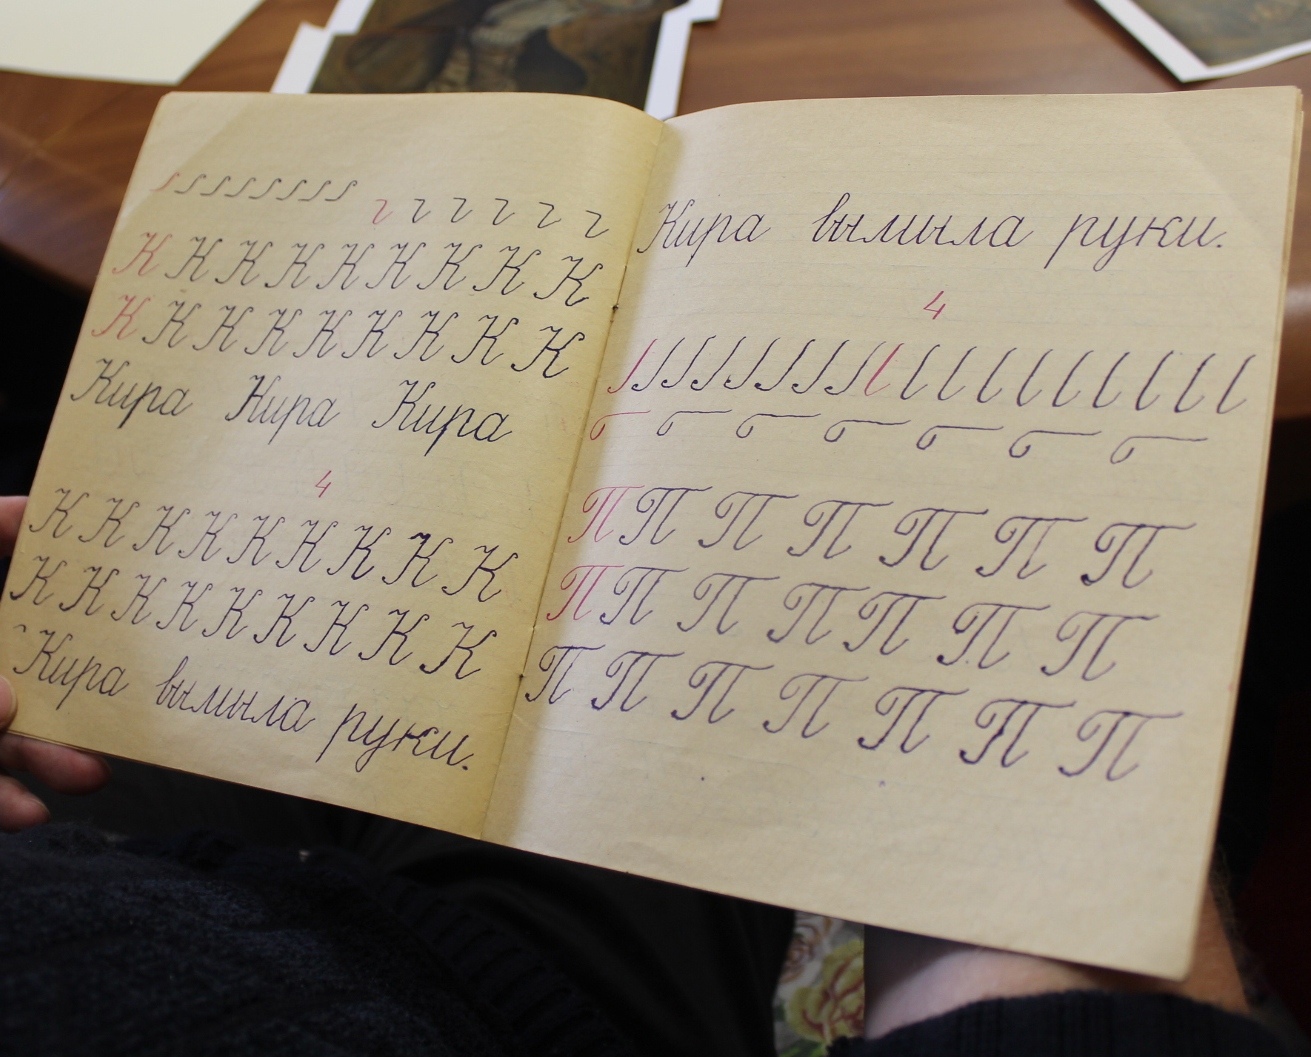 К К К К К К К К К
К К К К К К К К К
Кира Кира Кира
4
К К К К К К К К К
К К К К К К К К К
Кира вымыла руки.
Кира вымыла руки.
4
П П П П П П П
П П П П П П П
П П П П П П П